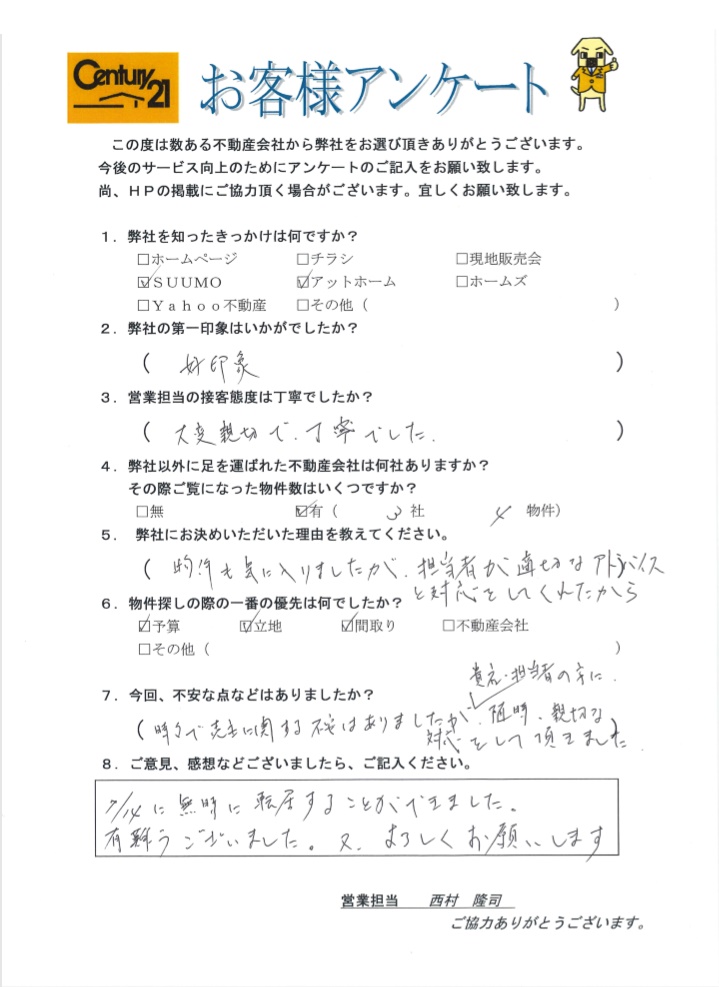 Century 21
お客様アンケート
この度は数ある不動産会社から弊社をお選び頂きありがとうございます。
今後のサービス向上のためにアンケートのご記入をお願い致します。
尚、HPの掲載にご協力頂く場合がございます。宜しくお願い致します。
1．弊社を知ったきっかけは何ですか？
□ホームページ □チラシ □現地販売会
☑SUUMO ☑アットホーム □ホームズ
□Yahoo不動産 □その他（ ）
2．弊社の第一印象はいかがでしたか？
（ 好印象 ）
3．営業担当の接客態度は丁寧でしたか？
（ 大変親切で、丁寧でした. ）
4．弊社以外に足を運ばれた不動産会社は何社ありますか？
その際ご覧になった物件数はいくつですか？
□無 ☑有（ 3 社 4 物件）
5． 弊社にお決めいただいた理由を教えてください。
（ 物件も気に入りましたが、担当者が適切なアドバイス
と対応をしてくれたから
6．物件探しの際の一番の優先は何でしたか？
☑予算 ☑立地 ☑間取り □不動産会社
□その他（ ）
貴社・担当者の方に、
7．今回、不安な点などはありましたか？
（ 時々で売主に関する不安はありましたが、随時、親切な ）
対応をして頂きました.
8．ご意見、感想などございましたら、ご記入ください。
7/14に無時に転居することができました。
有難うございました。又、よろしくお願いします
営業担当 西村 隆司
ご協力ありがとうございます。